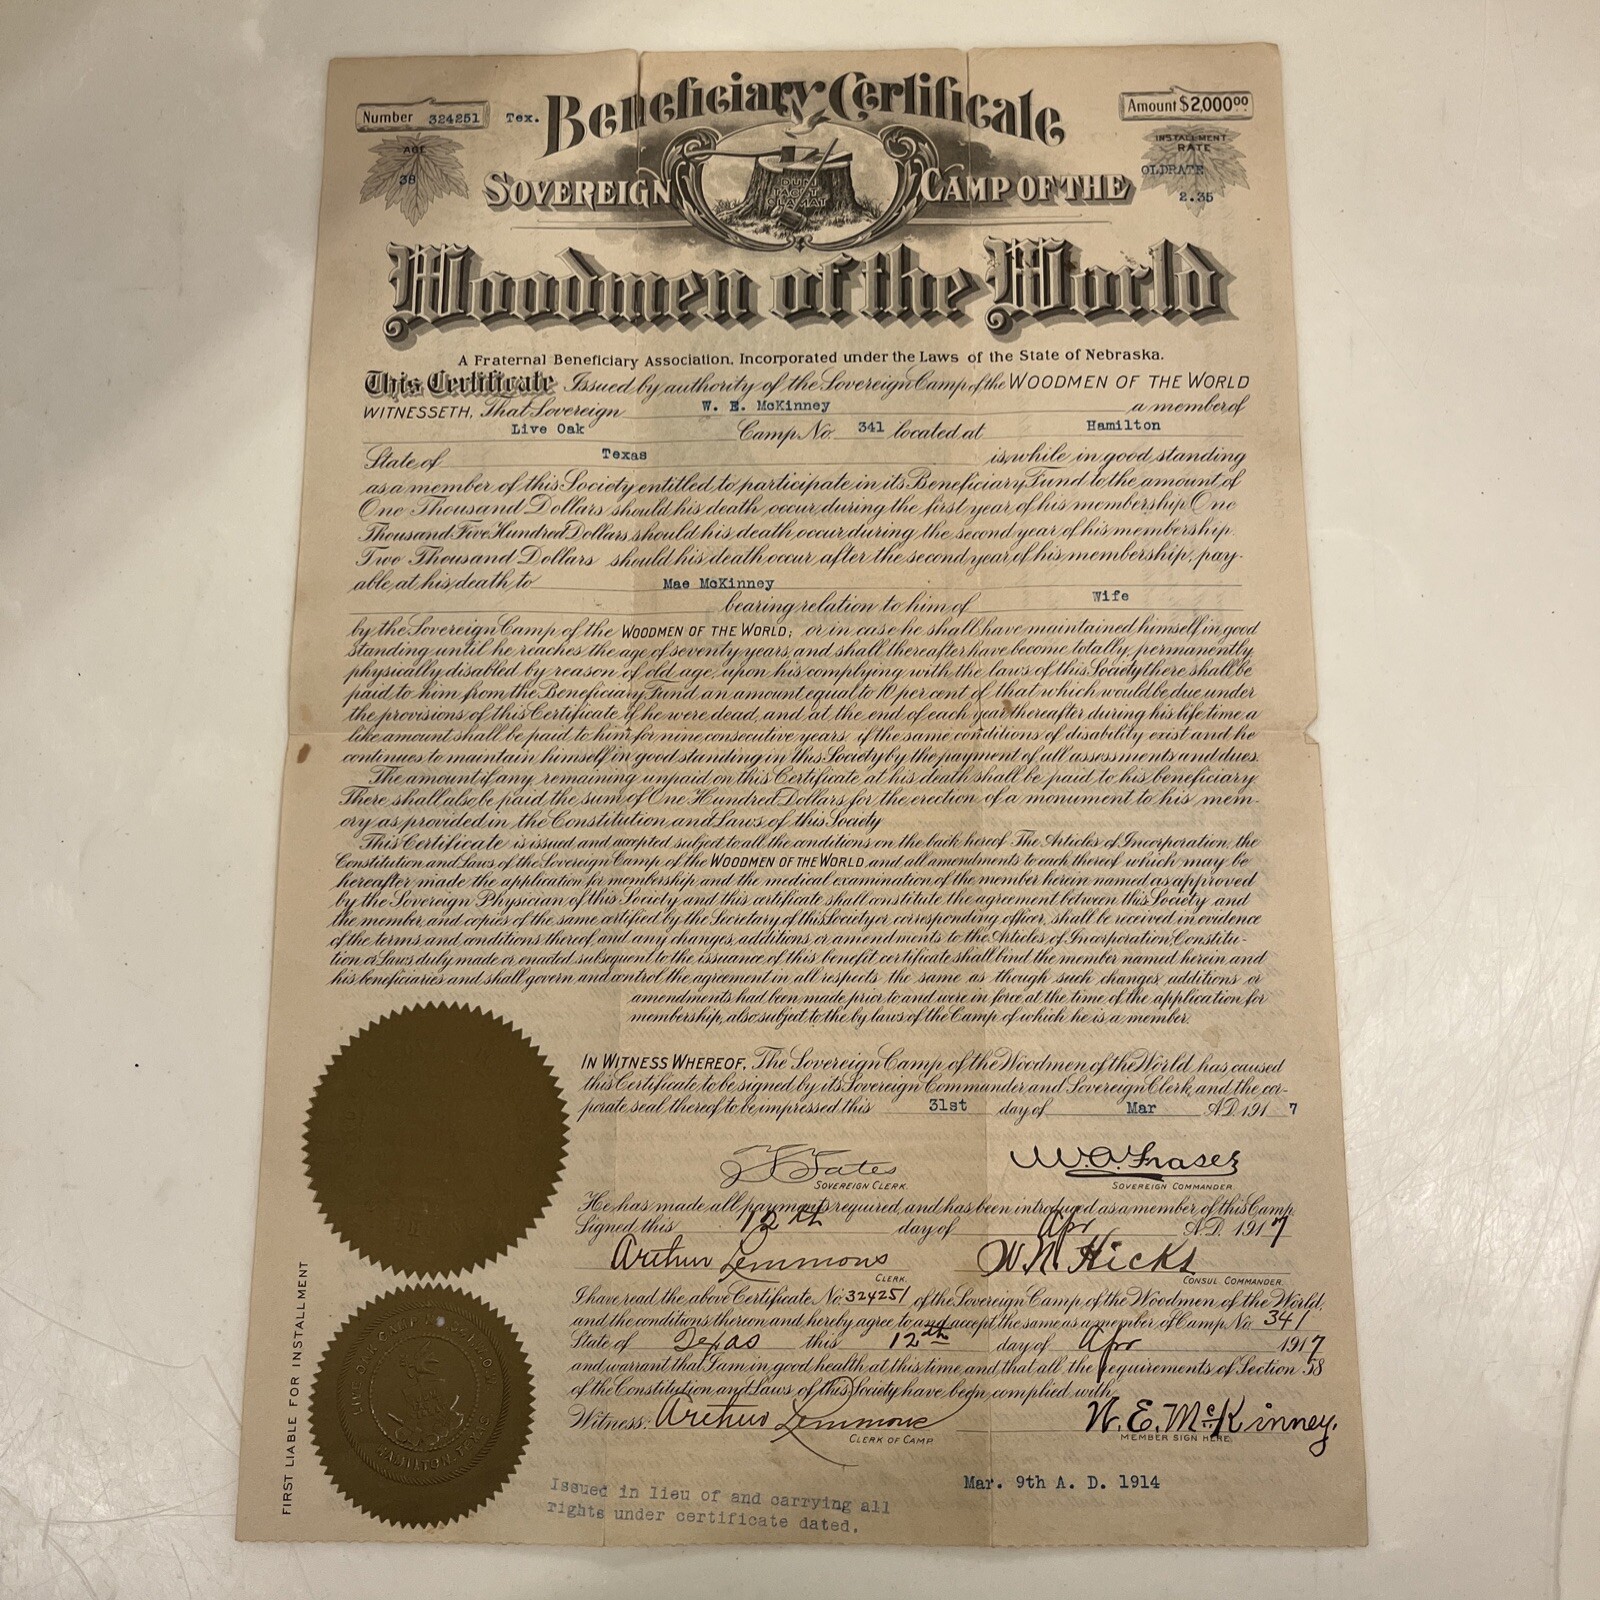 Number 324251 Tex.
Beneficiary Certificate
Amount $2,000.00
AGE
38
INSTALLMENT
RATE
OLDRATE
2.35
DUM
TACET
CLAMAT
SOVEREIGN CAMP OF THE
Woodmen of the World
A Fraternal Beneficiary Association, Incorporated under the Laws of the State of Nebraska.
This Certificate Issued by authority of the Sovereign Camp of the WOODMEN OF THE WORLD
WITNESSETH, That Sovereign W. E. McKinney a member of
Live Oak Camp No. 341 located at Hamilton
State of Texas is, while in good standing
as a member of this Society entitled to participate in its Beneficiary Fund to the amount of
One Thousand Dollars should his death occur during the first year of his membership, One
Thousand Five Hundred Dollars should his death occur during the second year of his membership.
Two Thousand Dollars should his death occur after the second year of his membership, pay-
able at his death to Mae McKinney
bearing relation to him of Wife
by the Sovereign Camp of the WOODMEN OF THE WORLD; or in case he shall have maintained himself in good
standing until he reaches the age of seventy years, and shall thereafter have become totally, permanently,
physically disabled by reason of old age, upon his complying with the laws of this Society there shall be
paid to him from the Beneficiary Fund an amount equal to 10 per cent of that which would be due under
the provisions of this Certificate if he were dead, and at the end of each year thereafter during his life time a
like amount shall be paid to him for nine consecutive years, if the same conditions of disability exist and he
continues to maintain himself in good standing in this Society by the payment of all assessments and dues.
The amount if any remaining unpaid on this Certificate at his death shall be paid to his beneficiary.
There shall also be paid the sum of One Hundred Dollars for the erection of a monument to his mem-
ory as provided in the Constitution and Laws of this Society
This Certificate is issued and accepted subject to all the conditions on the back hereof. The Articles of Incorporation, the
Constitution and Laws of the Sovereign Camp of the WOODMEN OF THE WORLD and all amendments to each thereof which may be
hereafter made the application for membership and the medical examination of the member herein named as approved
by the Sovereign Physician of this Society and this certificate shall constitute the agreement between this Society and
the member, and copies of the same certified by the Secretary of this Society or corresponding officer, shall be received in evidence
of the terms and conditions thereof, and any changes, additions or amendments to the Articles of Incorporation, Constitu-
tion or Laws duly made or enacted subsequent to the issuance of this benefit certificate shall bind the member named herein, and
his beneficiaries and shall govern and control the agreement in all respects the same as though such changes, additions or
amendments had been made prior to and were in force at the time of the application for
membership, also subject to the by laws of the Camp of which he is a member.
IN WITNESS WHEREOF, The Sovereign Camp of the Woodmen of the World has caused
this Certificate to be signed by its Sovereign Commander and Sovereign Clerk, and the cor-
porate seal thereof to be impressed this 31st day of Mar A.D. 191 7
W.A. Fraser
SOVEREIGN CLERK. SOVEREIGN COMMANDER.
He has made all payments required, and has been introduced as a member of this Camp.
Signed this 12th day of Apr A.D. 1917
Arthur Lemmons W N Hicks
CLERK. CONSUL COMMANDER.
I have read the above Certificate No. 324251 of the Sovereign Camp of the Woodmen of the World,
and the conditions thereon and hereby agree to and accept the same as a member of Camp No. 341
State of Texas this 12th day of Apr 1917
and warrant that I am in good health at this time and that all the requirements of Section 58
of the Constitution and Laws of this Society have been complied with.
Witness: Arthur Lemmons W. E. McKinney.
CLERK OF CAMP. MEMBER SIGN HERE.
Issued in lieu of and carrying all
rights under certificate dated, Mar. 9th A. D. 1914
FIRST LIABLE FOR INSTALLMENT
LIVE OAK CAMP
HAMILTON,